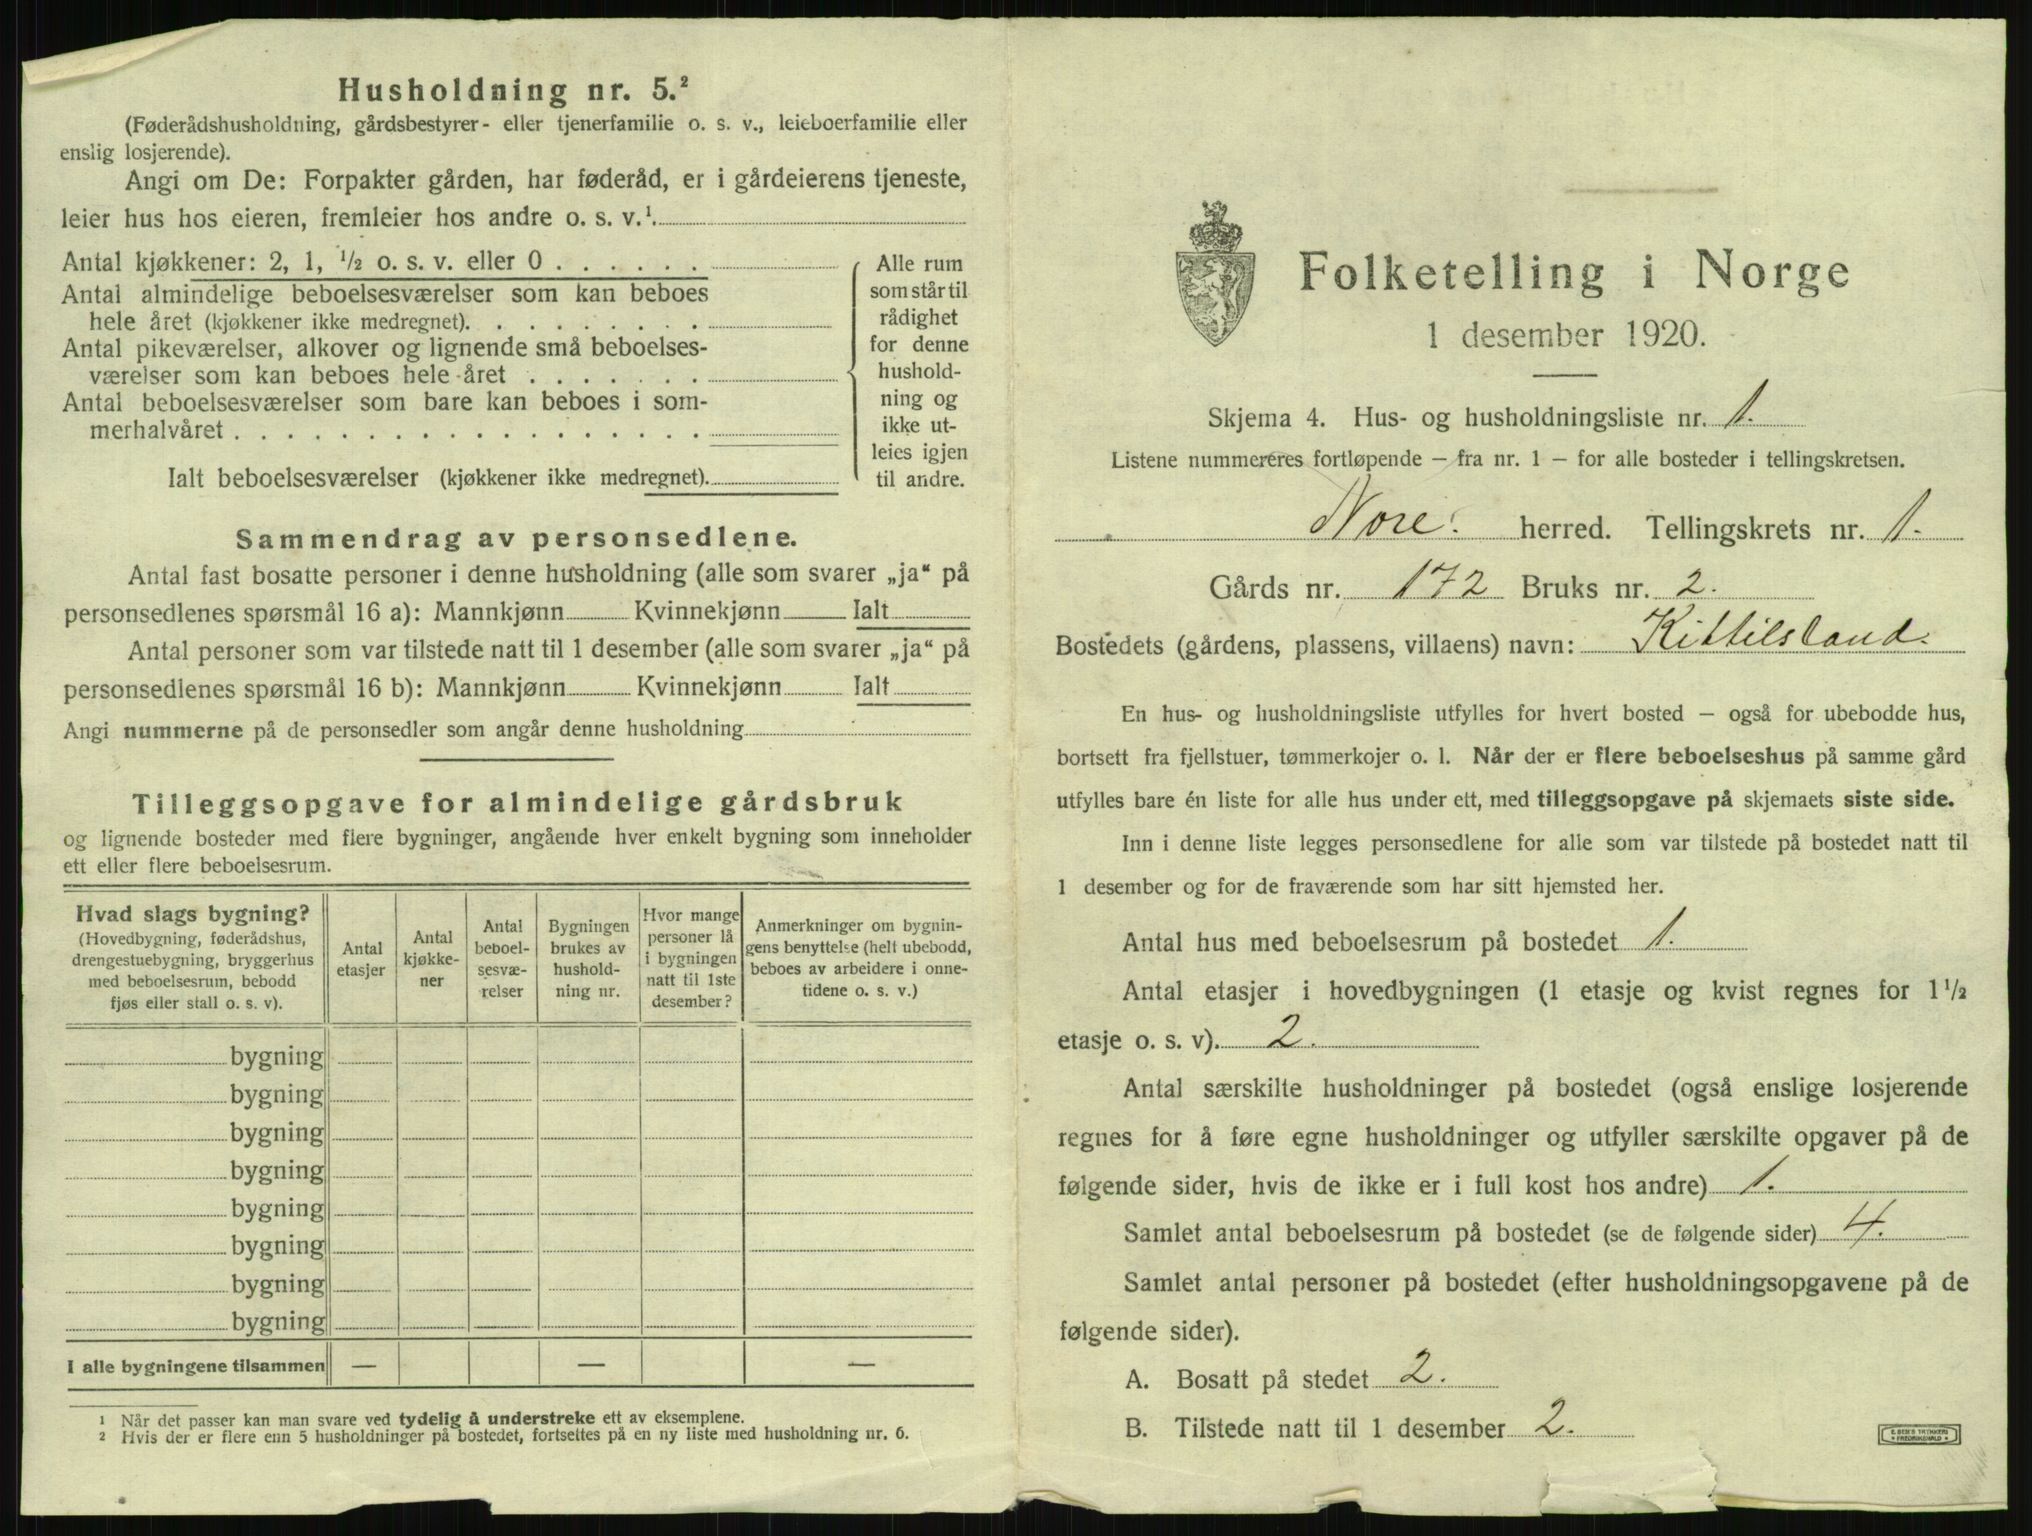 Husholdning nr. 5.²
(Føderådshusholdning, gårdsbestyrer- eller tjenerfamilie o. s. v., leieboerfamilie eller
enslig losjerende).
Angi om De: Forpakter gården, har føderåd, er i gårdeierens tjeneste,
leier hus hos eieren, fremleier hos andre o. s. v.¹.
Antal kjøkkener: 2, 1, ½ o. s. v. eller 0 . . . . . .
Antal almindelige beboelsesværelser som kan beboes
hele året (kjøkkener ikke medregnet). . . . . . . . .
Antal pikeværelser, alkover og lignende små beboelses-
værelser som kan beboes hele året . . . . . . .
Antal beboelsesværelser som bare kan beboes i som-
merhalvåret . . . . . . . . . . . . . . . . . .
Ialt beboelsesværelser (kjøkkener ikke medregnet).
Alle rum
som står til
rådighet
for denne
hushold-
ning og
ikke ut-
leies igjen
til andre.
Sammendrag av personsedlene.
Antal fast bosatte personer i denne husholdning (alle som svarer „ja“ på
personsedlenes spørsmål 16 a): Mannkjønn Kvinnekjønn Ialt
Antal personer som var tilstede natt til 1 desember (alle som svarer „ja“ på
personsedlenes spørsmål 16 b): Mannkjønn Kvinnekjønn Ialt
Angi nummerne på de personsedler som angår denne husholdning
Tilleggsopgave for almindelige gårdsbruk
og lignende bosteder med flere bygninger, angående hver enkelt bygning som inneholder
ett eller flere beboelsesrum.
Hvad slags bygning?
(Hovedbygning, føderådshus,
drengestuebygning, bryggerhus
med beboelsesrum, bebodd
fjøs eller stall o. s. v).
Antal
etasjer
Antal
kjøkke-
ner
Antal
beboel-
sesvæ-
relser
Bygningen
brukes av
hushold-
ning nr.
Hvor mange
personer lå
i bygningen
natt til 1ste
desember?
Anmerkninger om bygnin-
gens benyttelse (helt ubebodd,
beboes av arbeidere i onne-
tidene o. s. v.)
bygning
bygning
bygning
bygning
bygning
bygning
bygning
bygning
I alle bygningene tilsammen — — —
¹ Når det passer kan man svare ved tydelig å understreke ett av eksemplene.
² Hvis der er flere enn 5 husholdninger på bostedet, fortsettes på en ny liste med husholdning nr. 6.
Folketelling i Norge
1 desember 1920.
Skjema 4. Hus- og husholdningsliste nr. 1.
Listene nummereres fortløpende – fra nr. 1 – for alle bosteder i tellingskretsen.
Nore. herred. Tellingskrets nr. 1.
Gårds nr. 172 Bruks nr. 2.
Bostedets (gårdens, plassens, villaens) navn: Kittilsland.
En hus- og husholdningsliste utfylles for hvert bosted – også for ubebodde hus,
bortsett fra fjellstuer, tømmerkojer o. l. Når der er flere beboelseshus på samme gård
utfylles bare én liste for alle hus under ett, med tilleggsopgave på skjemaets siste side.
Inn i denne liste legges personsedlene for alle som var tilstede på bostedet natt til
1 desember og for de fraværende som har sitt hjemsted her.
Antal hus med beboelsesrum på bostedet 1.
Antal etasjer i hovedbygningen (1 etasje og kvist regnes for 1½
etasje o. s. v). 2.
Antal særskilte husholdninger på bostedet (også enslige losjerende
regnes for å føre egne husholdninger og utfyller særskilte opgaver på de
følgende sider, hvis de ikke er i full kost hos andre) 1.
Samlet antal beboelsesrum på bostedet (se de følgende sider) 4.
Samlet antal personer på bostedet (efter husholdningsopgavene på de
følgende sider).
A. Bosatt på stedet 2.
B. Tilstede natt til 1 desember 2.